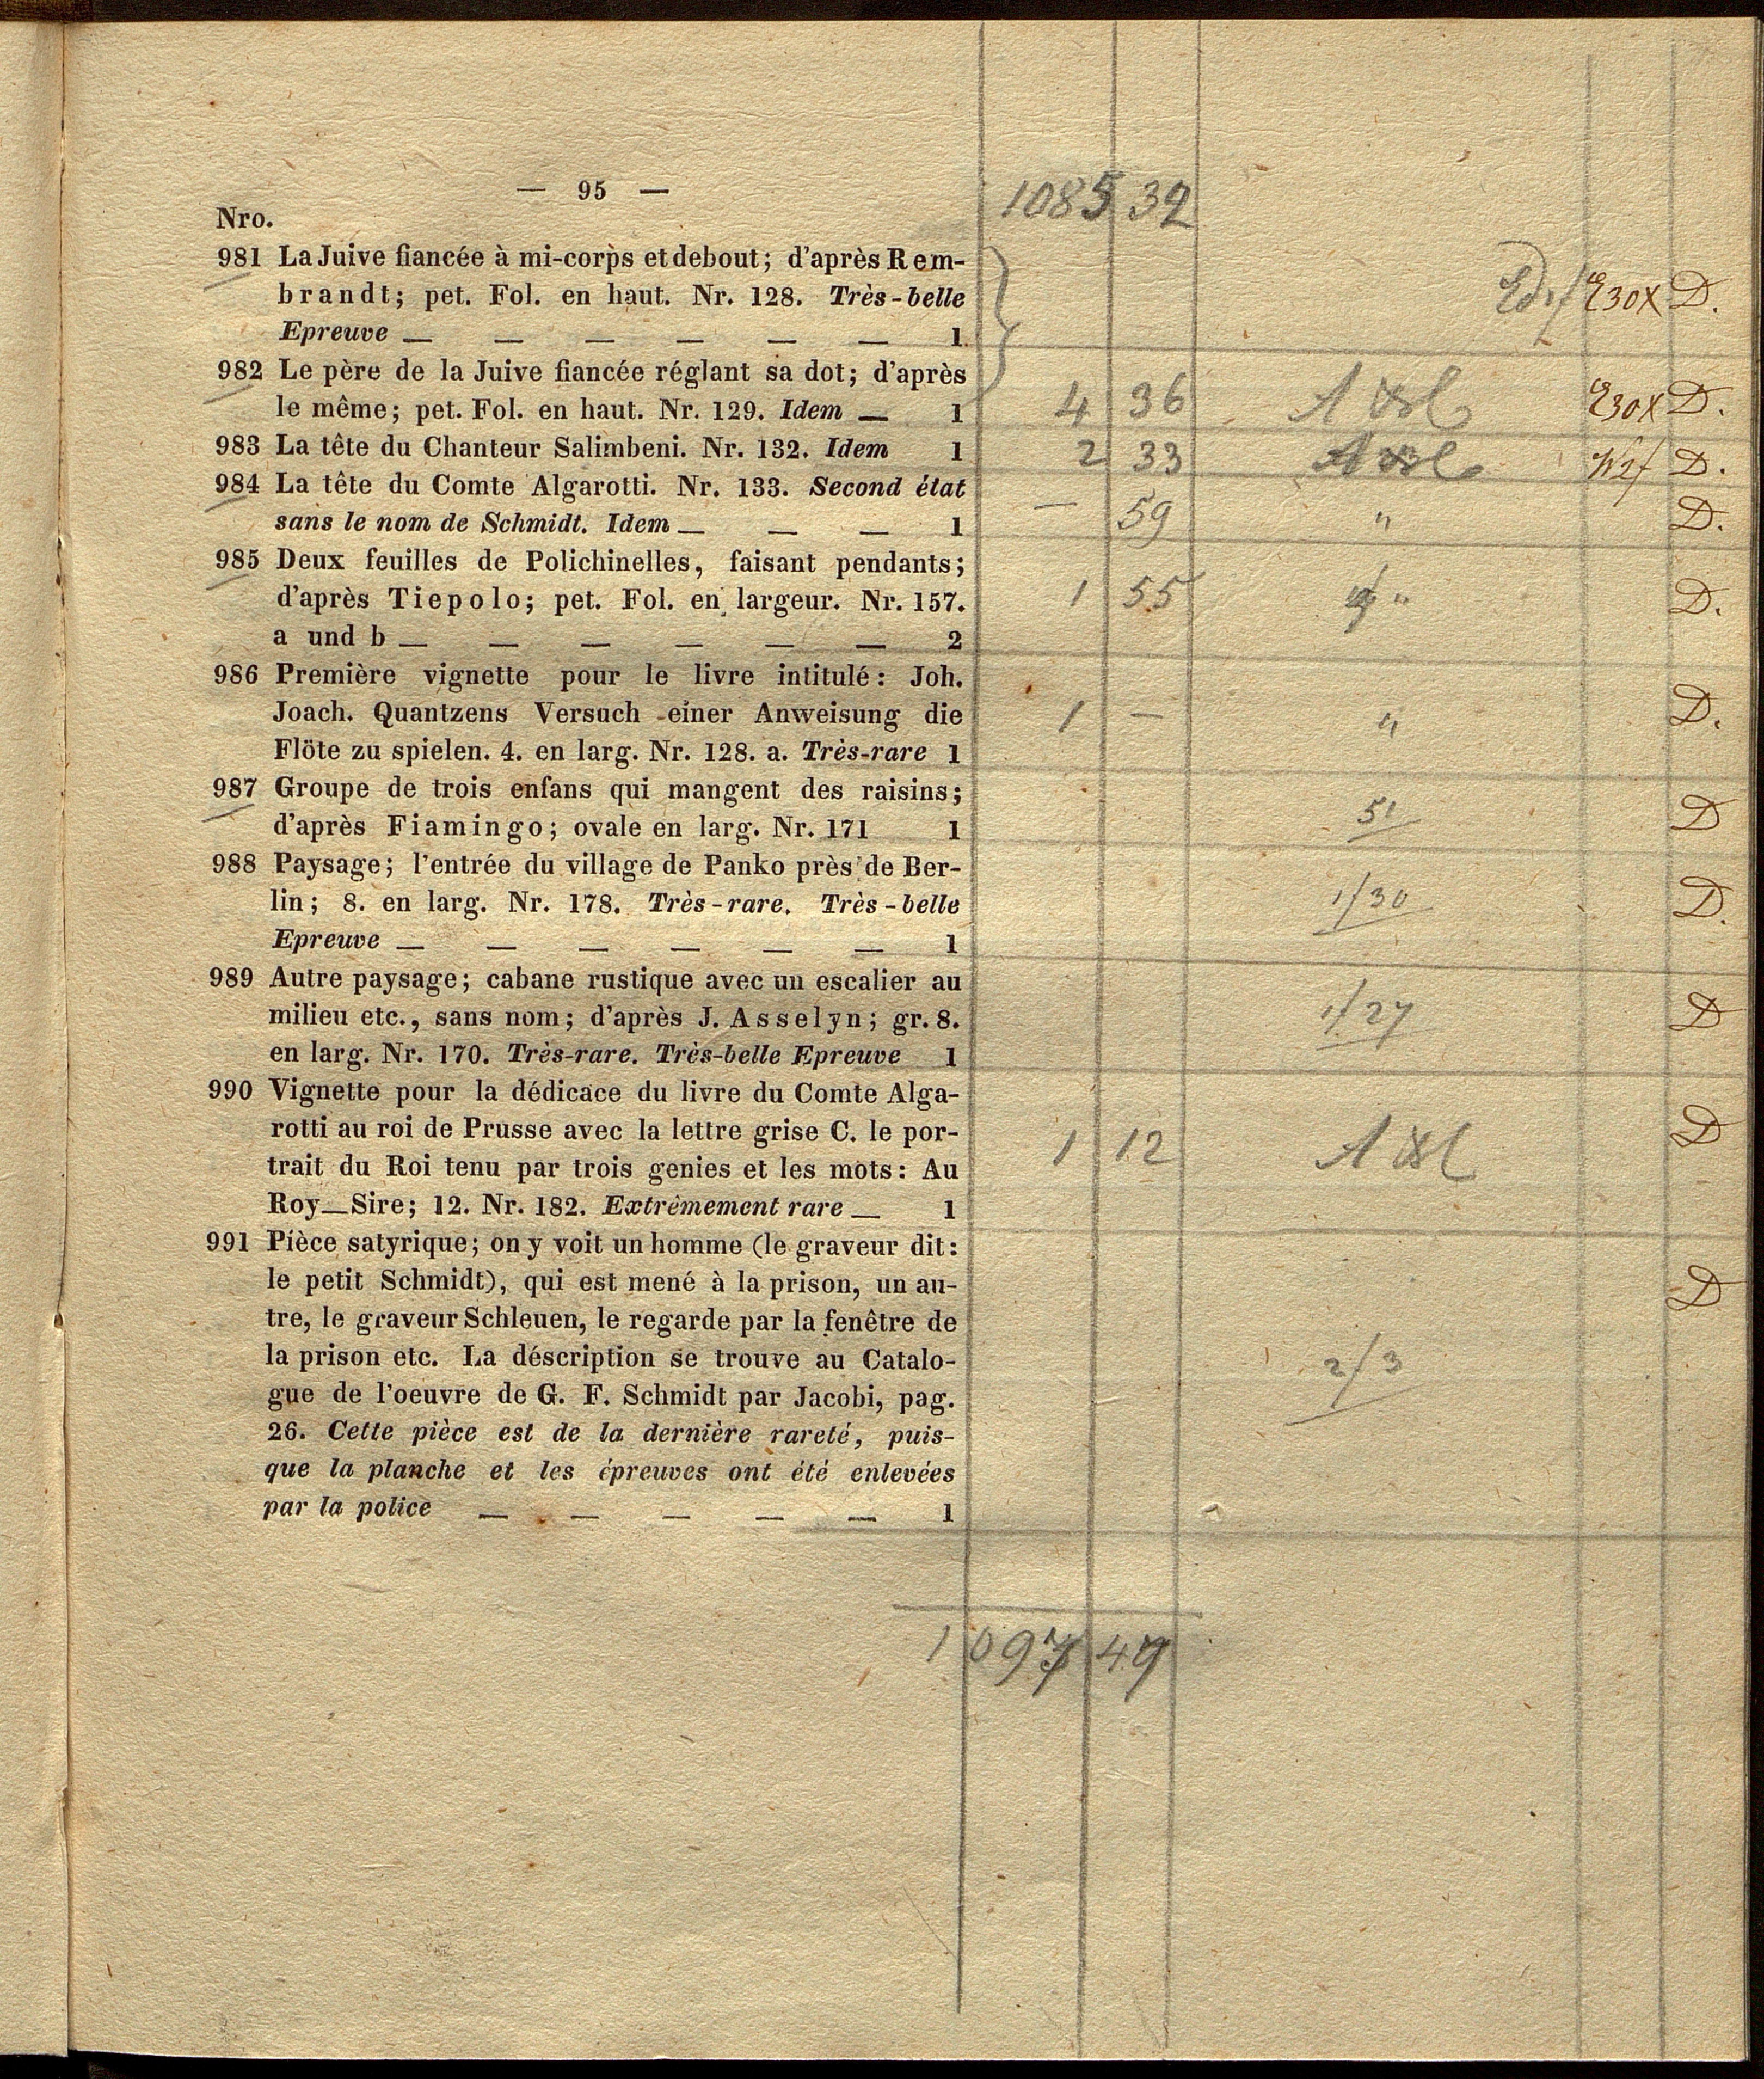 — 95 —
1085 32
Nro.
981 La Juive fiancée à mi-corps et debout; d'après Rem-
brandt; pet. Fol. en haut. Nr. 128. Très-belle E30x D.
Epreuve — — — — — — 1
982 Le père de la Juive fiancée réglant sa dot; d'après
le même; pet. Fol. en haut. Nr. 129. Idem — 1 4 36 E30x D.
983 La tête du Chanteur Salimbeni. Nr. 132. Idem 1 2 33 D.
984 La tête du Comte Algarotti. Nr. 133. Second état
sans le nom de Schmidt. Idem — — — 1 — 59 " D.
985 Deux feuilles de Polichinelles, faisant pendants;
d'après Tiepolo; pet. Fol. en largeur. Nr. 157. 1 55 " D.
a und b — — — — — — 2
986 Première vignette pour le livre intitulé: Joh.
Joach. Quantzens Versuch einer Anweisung die 1 — " D.
Flöte zu spielen. 4. en larg. Nr. 128. a. Très-rare 1
987 Groupe de trois enfans qui mangent des raisins; 51 D
d'après Fiamingo; ovale en larg. Nr. 171 1
988 Paysage; l'entrée du village de Panko près de Ber-
lin; 8. en larg. Nr. 178. Très-rare. Très-belle 1/30 D.
Epreuve — — — — — — 1
989 Autre paysage; cabane rustique avec un escalier au
milieu etc., sans nom; d'après J. Asselyn; gr. 8. 1/27 D
en larg. Nr. 170. Très-rare. Très-belle Epreuve 1
990 Vignette pour la dédicace du livre du Comte Alga-
rotti au roi de Prusse avec la lettre grise C. le por- 1 12 D
trait du Roi tenu par trois genies et les mots: Au
Roy—Sire; 12. Nr. 182. Extrèmement rare — 1
991 Pièce satyrique; on y voit un homme (le graveur dit:
le petit Schmidt), qui est mené à la prison, un au- D
tre, le graveur Schleuen, le regarde par la fenêtre de
la prison etc. La déscription se trouve au Catalo- 2/3
gue de l'oeuvre de G. F. Schmidt par Jacobi, pag.
26. Cette pièce est de la dernière rareté, puis-
que la planche et les épreuves ont été enlevées
par la police — — — — — 1
1097 49